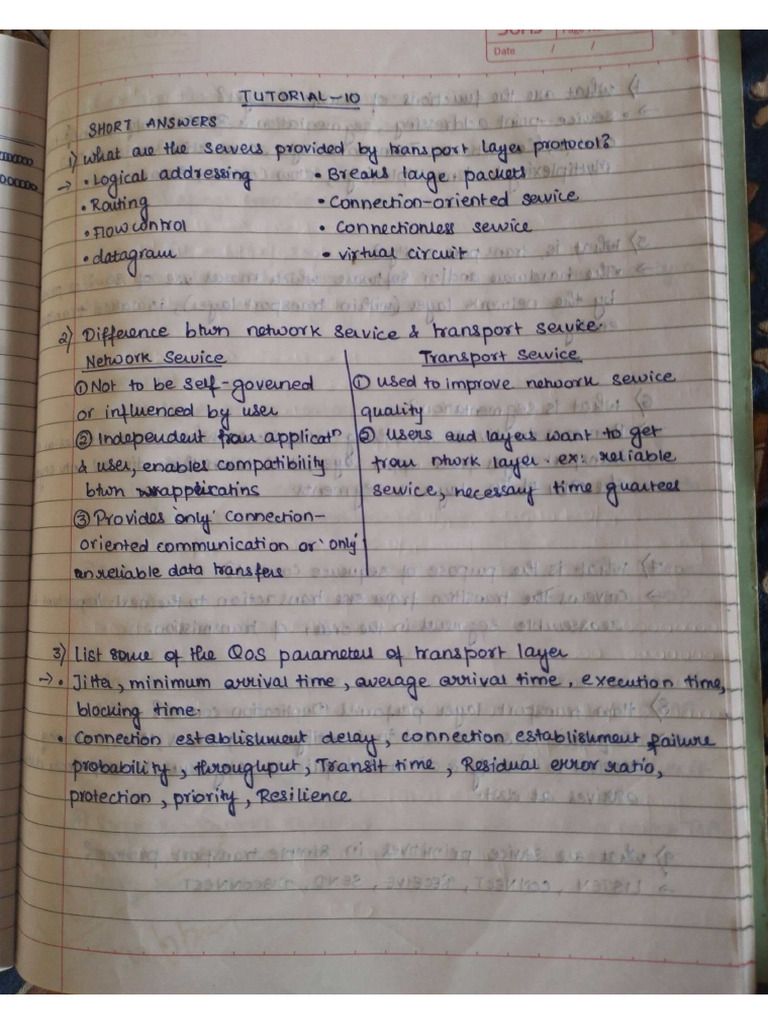 Date / /
TUTORIAL-10
SHORT ANSWERS
1) What are the servers provided by transport layer protocol?
→ • Logical addressing • Breaks large packets
• Routing • Connection-oriented service
• Flow control • Connectionless service
• datagram • virtual circuit
2) Difference btwn network service & transport service.
Network Service Transport Service
① Not to be self-governed ① used to improve network service
or influenced by user quality
② Independent from applicatn ② users and layers want to get
& user, enables compatibility from ntwork layer. ex: reliable
btwn service, necessary time guartees
③ Provides 'only' connection-
oriented communication or 'only'
unreliable data transfers
3) List some of the QOS parameters of transport layer
→ • Jitter, minimum arrival time, average arrival time, execution time,
blocking time.
• Connection establishment delay, connection establishment failure
probability, throughput, Transit time, Residual error ratio,
protection, priority, Resilience